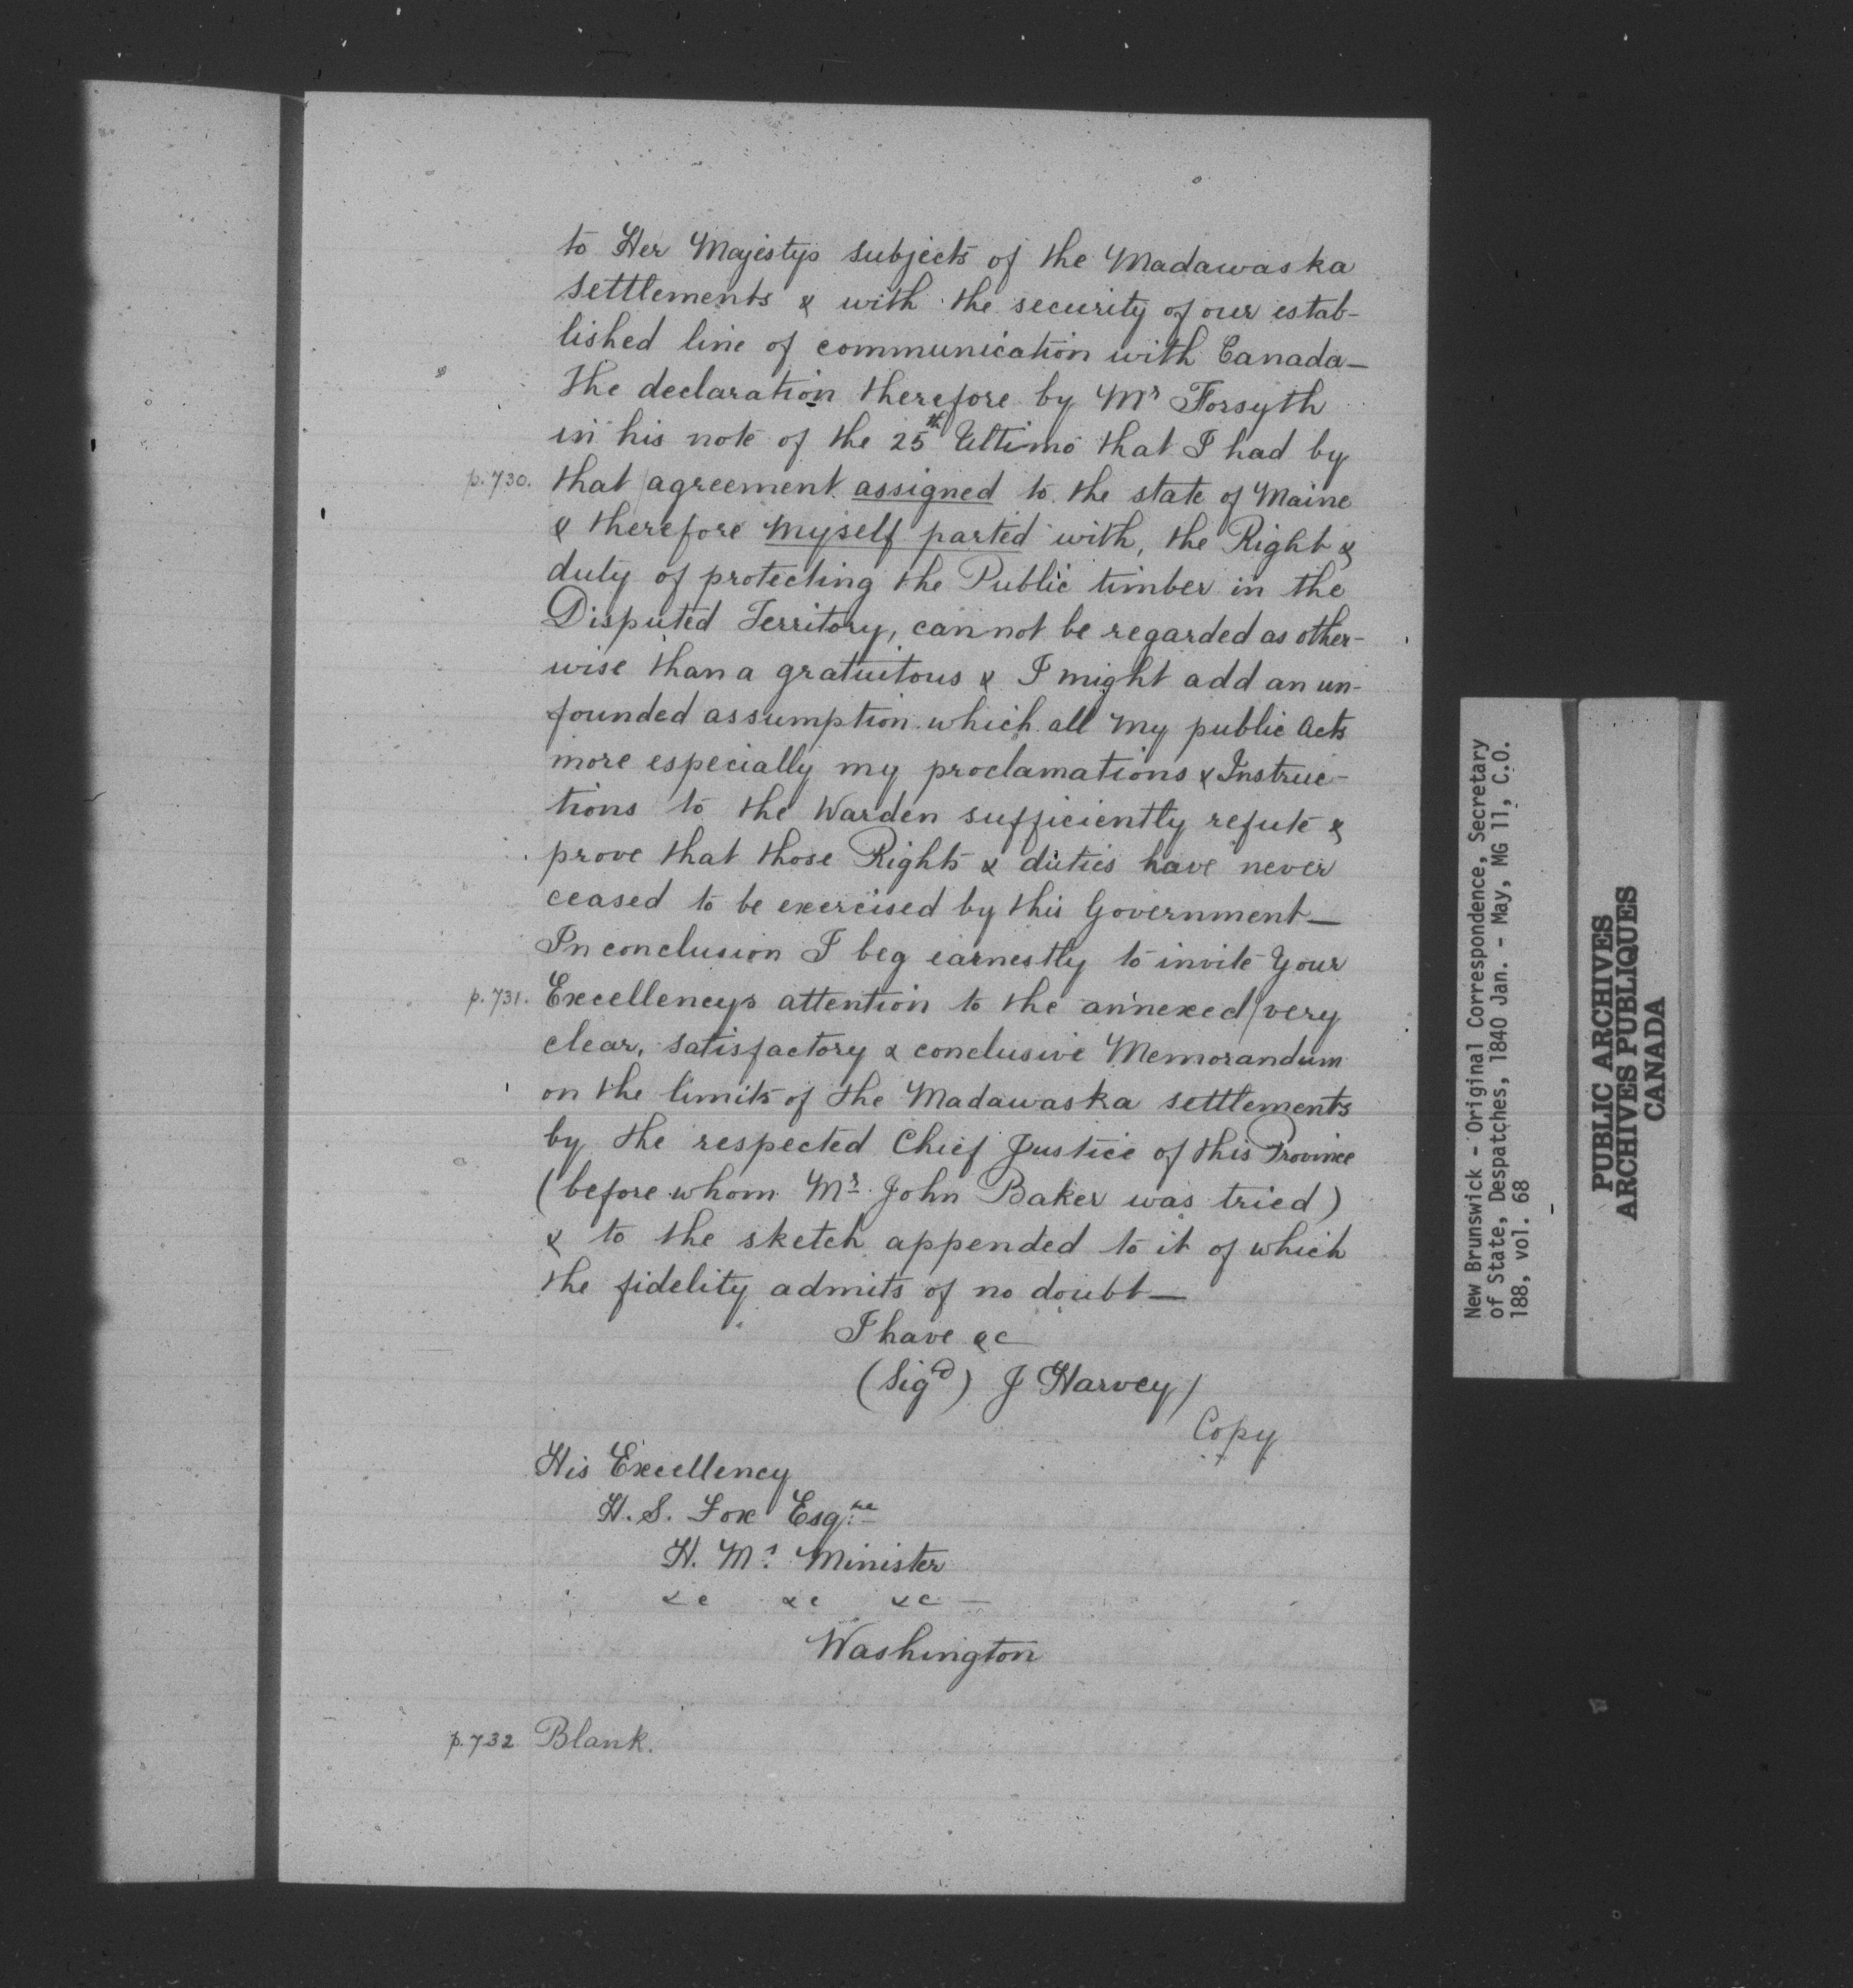 to Her Majestys subjects of the Madawaska
settlements & with the security of our estab-
lished line of communication with Canada—
The declaration therefore by Mr Forsyth
in his note of the 25th Ultimo that I had by
p.730. that/agreement assigned to the state of Maine
& therefore myself parted with, the Right &
duty of protecting the Public timber in the
Disputed Territory, cannot be regarded as other-
wise than a gratuitous & I might add an un-
founded assumption which all my public Acts
more especially my proclamations & Instruc-
tions to the Warden sufficiently refute &
prove that those Rights & duties have never
ceased to be exercised by this Government—
In conclusion I beg earnestly to invite Your
p.731. Excellencys attention to the annexed/very
clear, satisfactory & conclusive Memorandum
on the limits of the Madawaska settlements
by the respected Chief Justice of this Province
(before whom Mr. John Baker was tried)
& to the sketch appended to it of which
the fidelity admits of no doubt—
I have &c
(Sigd) J Harvey/
Copy
His Excellency
H. S. Fox Esqre
H. Ms. Minister
&c &c &c —
Washington
p.732 Blank.
New Brunswick - Original Correspondence, Secretary
of State, Despatches, 1840 Jan. - May, MG 11, C.O.
188, vol. 68
PUBLIC ARCHIVES
ARCHIVES PUBLIQUES
CANADA